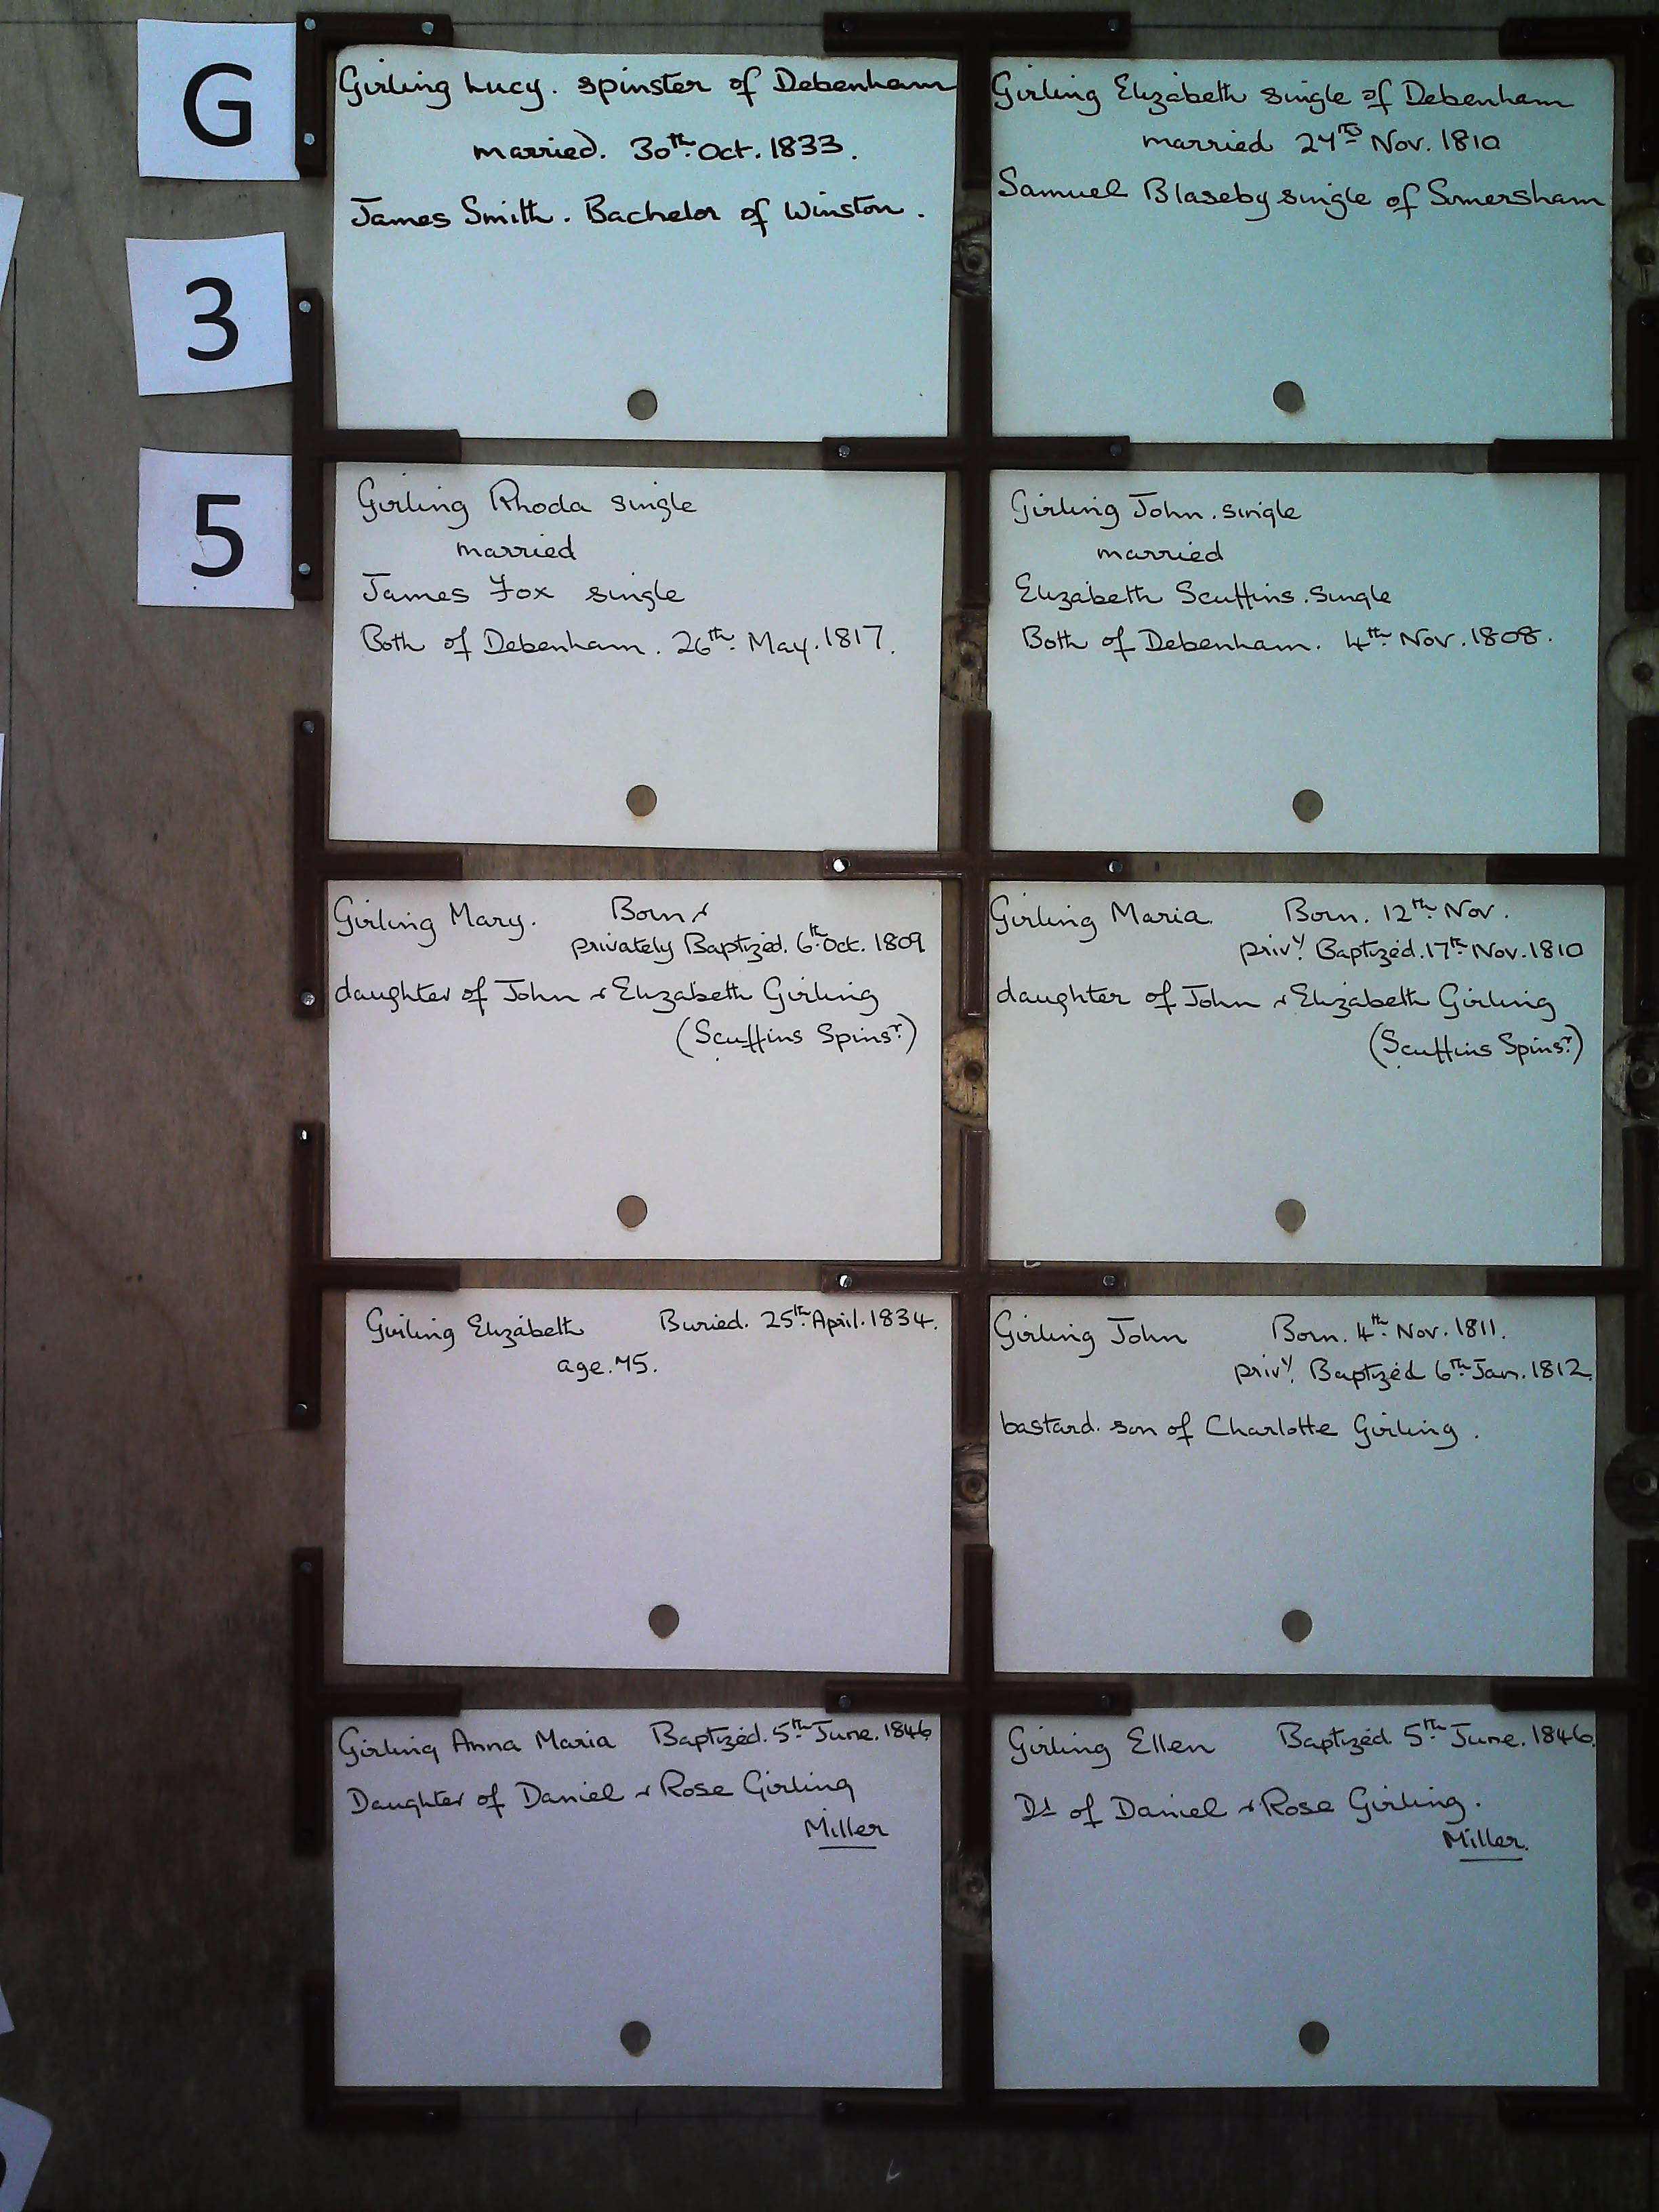 G
3
5
Girling Lucy. spinster of Debenham
married. 30th Oct. 1833.
James Smith. Bachelor of Winston.
Girling Elizabeth single of Debenham
married Nov. 1810
Samuel Blaseby single of Somersham
Girling Rhoda single
married
James Fox single
Both of Debenham. 26th May. 1817.
Girling John. single
married
Elizabeth Scuffins. single
Both of Debenham. 4th Nov. 1808.
Girling Mary. Born &
privately Baptized. 6th Oct. 1809
daughter of John & Elizabeth Girling
(Scuffins Spinsr.)
Girling Maria. Born. 12th Nov.
privy. Baptized. 17th Nov. 1810
daughter of John & Elizabeth Girling
(Scuffins Spinsr.)
Girling Elizabeth Buried. 25th April. 1834.
age. 75.
Girling John Born. 4th Nov. 1811.
privy. Baptized 6th Jan. 1812.
bastard. son of Charlotte Girling.
Girling Anna Maria Baptized. 5th June. 1846
Daughter of Daniel & Rose Girling
Miller
Girling Ellen Baptized 5th June. 1846.
Dr of Daniel & Rose Girling.
Miller.